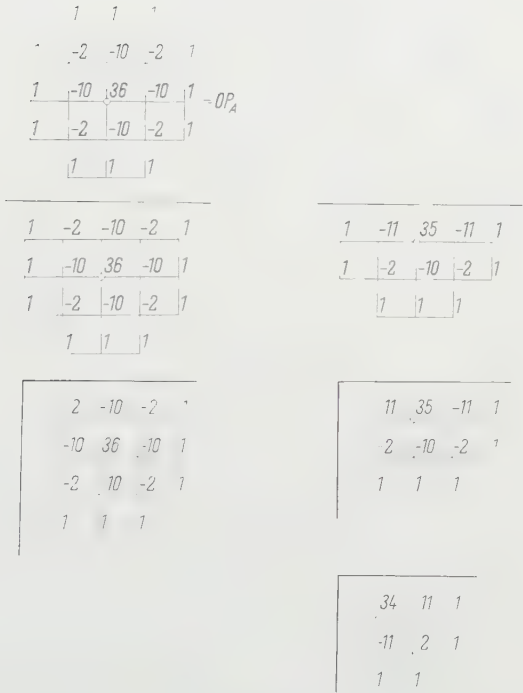 1 1 1
1 -2 -10 -2 1
1 -10 36 -10 1 = OP_A
1 -2 -10 -2 1
1 1 1
1 -2 -10 -2 1
1 -10 36 -10 1
1 -2 -10 -2 1
1 1 1
1 -11 35 -11 1
1 -2 -10 -2 1
1 1 1
2 -10 -2 1
-10 36 -10 1
-2 10 -2 1
1 1 1
11 35 -11 1
-2 -10 -2 1
1 1 1
34 11 1
-11 2 1
1 1